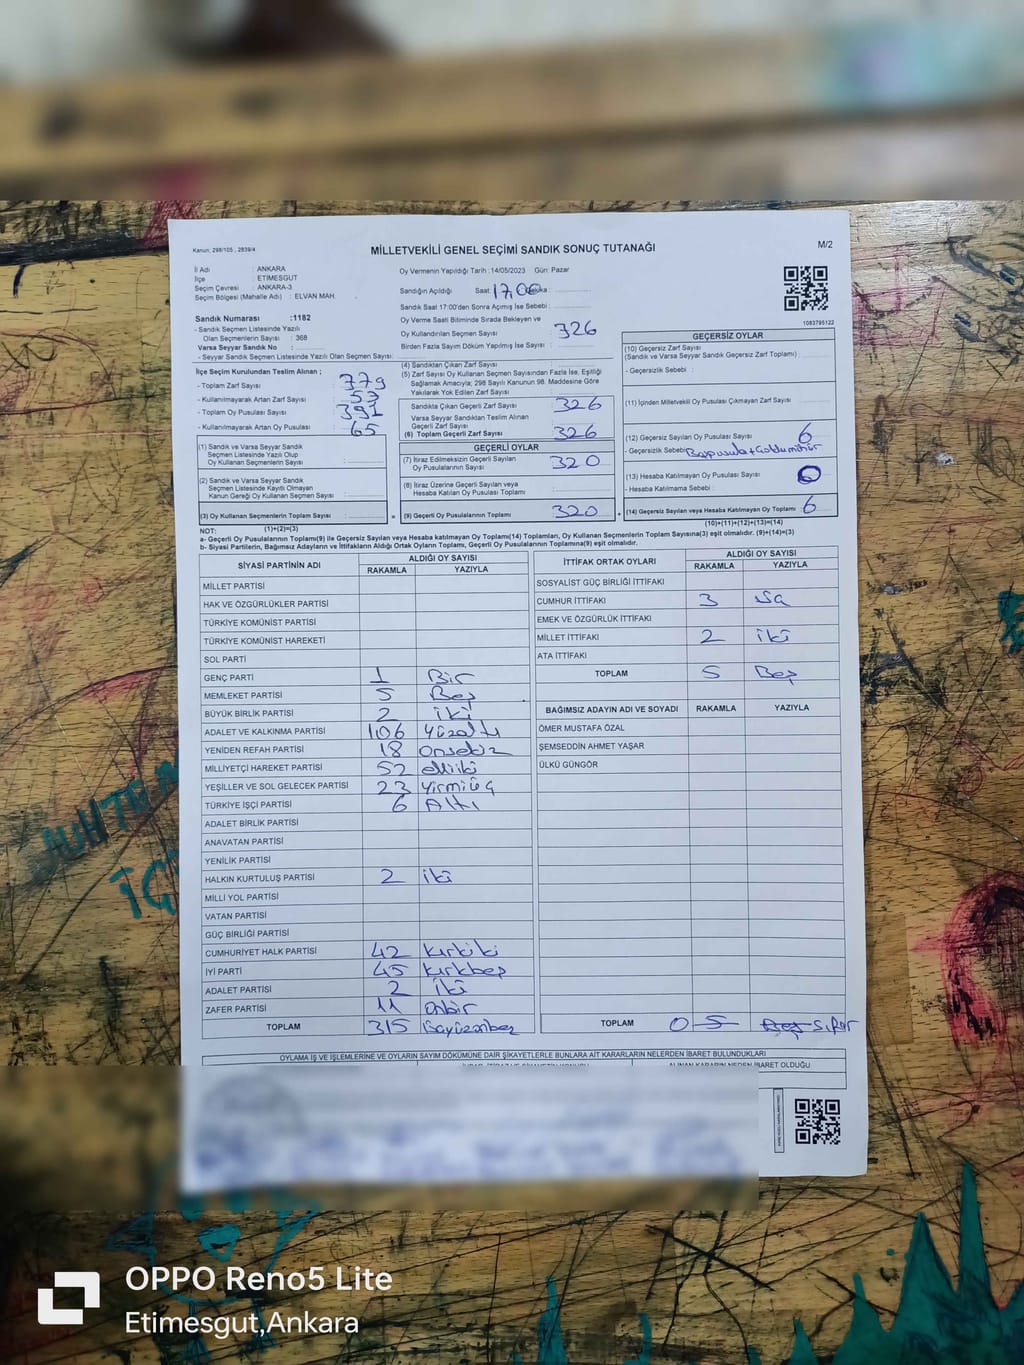 Kanun: 298/105 , 2839/4
MİLLETVEKİLİ GENEL SEÇİMİ SANDIK SONUÇ TUTANAĞI
M/2
İl Adı : ANKARA
İlçe : ETİMESGUT
Seçim Çevresi : ANKARA-3
Seçim Bölgesi (Mahalle Adı) : ELVAN MAH.
Oy Vermenin Yapıldığı Tarih :14/05/2023 Gün: Pazar
Sandığın Açıldığı Saat: 17,00
Sandık Saat 17:00'den Sonra Açılmış İse Sebebi :
Oy Verme Saati Bitiminde Sırada Bekleyen ve
Oy Kullandırılan Seçmen Sayısı : 326
Birden Fazla Sayım Döküm Yapılmış İse Sayısı :
1083795122
Sandık Numarası :1182
- Sandık Seçmen Listesinde Yazılı
Olan Seçmenlerin Sayısı : 368
Varsa Seyyar Sandık No :
- Seyyar Sandık Seçmen Listesinde Yazılı Olan Seçmen Sayısı:
İlçe Seçim Kurulundan Teslim Alınan ;
- Toplam Zarf Sayısı : 379
- Kullanılmayarak Artan Zarf Sayısı : 53
- Toplam Oy Pusulası Sayısı : 391
- Kullanılmayarak Artan Oy Pusulası : 65
(1) Sandık ve Varsa Seyyar Sandık
Seçmen Listesinde Yazılı Olup
Oy Kullanan Seçmenlerin Sayısı :
(2) Sandık ve Varsa Seyyar Sandık
Seçmen Listesinde Kayıtlı Olmayan
Kanun Gereği Oy Kullanan Seçmen Sayısı :
(3) Oy Kullanan Seçmenlerin Toplam Sayısı :
(1)+(2)=(3)
(4) Sandıktan Çıkan Zarf Sayısı :
(5) Zarf Sayısı Oy Kullanan Seçmen Sayısından Fazla İse, Eşitliği
Sağlamak Amacıyla; 298 Sayılı Kanunun 98. Maddesine Göre
Yakılarak Yok Edilen Zarf Sayısı :
Sandıkta Çıkan Geçerli Zarf Sayısı : 326
Varsa Seyyar Sandıktan Teslim Alınan
Geçerli Zarf Sayısı :
(6) Toplam Geçerli Zarf Sayısı : 326
GEÇERLİ OYLAR
(7) İtiraz Edilmeksizin Geçerli Sayılan
Oy Pusulalarının Sayısı : 320
(8) İtiraz Üzerine Geçerli Sayılan veya
Hesaba Katılan Oy Pusulası Toplamı :
= (9) Geçerli Oy Pusulalarının Toplamı : 320
GEÇERSİZ OYLAR
(10) Geçersiz Zarf Sayısı
(Sandık ve Varsa Seyyar Sandık Geçersiz Zarf Toplamı) :
- Geçersizlik Sebebi :
(11) İçinden Milletvekili Oy Pusulası Çıkmayan Zarf Sayısı :
(12) Geçersiz Sayılan Oy Pusulası Sayısı : 6
- Geçersizlik Sebebi :
(13) Hesaba Katılmayan Oy Pusulası Sayısı : 0
- Hesaba Katılmama Sebebi :
+ (14) Geçersiz Sayılan veya Hesaba Katılmayan Oy Toplamı : 6
(10)+(11)+(12)+(13)=(14)
NOT:
a- Geçerli Oy Pusulalarının Toplamı(9) ile Geçersiz Sayılan veya Hesaba katılmayan Oy Toplam(14) Toplamları, Oy Kullanan Seçmenlerin Toplam Sayısına(3) eşit olmalıdır. (9)+(14)=(3)
b- Siyasi Partilerin, Bağımsız Adayların ve İttifakların Aldığı Ortak Oyların Toplamı, Geçerli Oy Pusulalarının Toplamına(9) eşit olmalıdır.
SİYASİ PARTİNİN ADI ALDIĞI OY SAYISI
RAKAMLA YAZIYLA
MİLLET PARTİSİ
HAK VE ÖZGÜRLÜKLER PARTİSİ
TÜRKİYE KOMÜNİST PARTİSİ
TÜRKİYE KOMÜNİST HAREKETİ
SOL PARTİ
GENÇ PARTİ 1 Bir
MEMLEKET PARTİSİ 5 Beş
BÜYÜK BİRLİK PARTİSİ 2 iki
ADALET VE KALKINMA PARTİSİ 106 Yüzaltı
YENİDEN REFAH PARTİSİ 18 Onsekiz
MİLLİYETÇİ HAREKET PARTİSİ 52 elliiki
YEŞİLLER VE SOL GELECEK PARTİSİ 23 yirmiüç
TÜRKİYE İŞÇİ PARTİSİ 6 Altı
ADALET BİRLİK PARTİSİ
ANAVATAN PARTİSİ
YENİLİK PARTİSİ
HALKIN KURTULUŞ PARTİSİ 2 iki
MİLLİ YOL PARTİSİ
VATAN PARTİSİ
GÜÇ BİRLİĞİ PARTİSİ
CUMHURİYET HALK PARTİSİ 42 kırkiki
İYİ PARTİ 45 kırkbeş
ADALET PARTİSİ 2 iki
ZAFER PARTİSİ 11 onbir
TOPLAM 315 üçyüzonbeş
İTTİFAK ORTAK OYLARI ALDIĞI OY SAYISI
RAKAMLA YAZIYLA
SOSYALİST GÜÇ BİRLİĞİ İTTİFAKI
CUMHUR İTTİFAKI 3 üç
EMEK VE ÖZGÜRLÜK İTTİFAKI
MİLLET İTTİFAKI 2 iki
ATA İTTİFAKI
TOPLAM 5 Beş
BAĞIMSIZ ADAYIN ADI VE SOYADI RAKAMLA YAZIYLA
ÖMER MUSTAFA ÖZAL
ŞEMSEDDİN AHMET YAŞAR
ÜLKÜ GÜNGÖR
TOPLAM 0 5 Beş sıfır
OYLAMA İŞ VE İŞLEMLERİNE VE OYLARIN SAYIM DÖKÜMÜNE DAİR ŞİKAYETLERLE BUNLARA AİT KARARLARIN NELERDEN İBARET BULUNDUKLARI
ALINAN KARARIN NEDEN İBARET OLDUĞU
OPPO Reno5 Lite
Etimesgut,Ankara